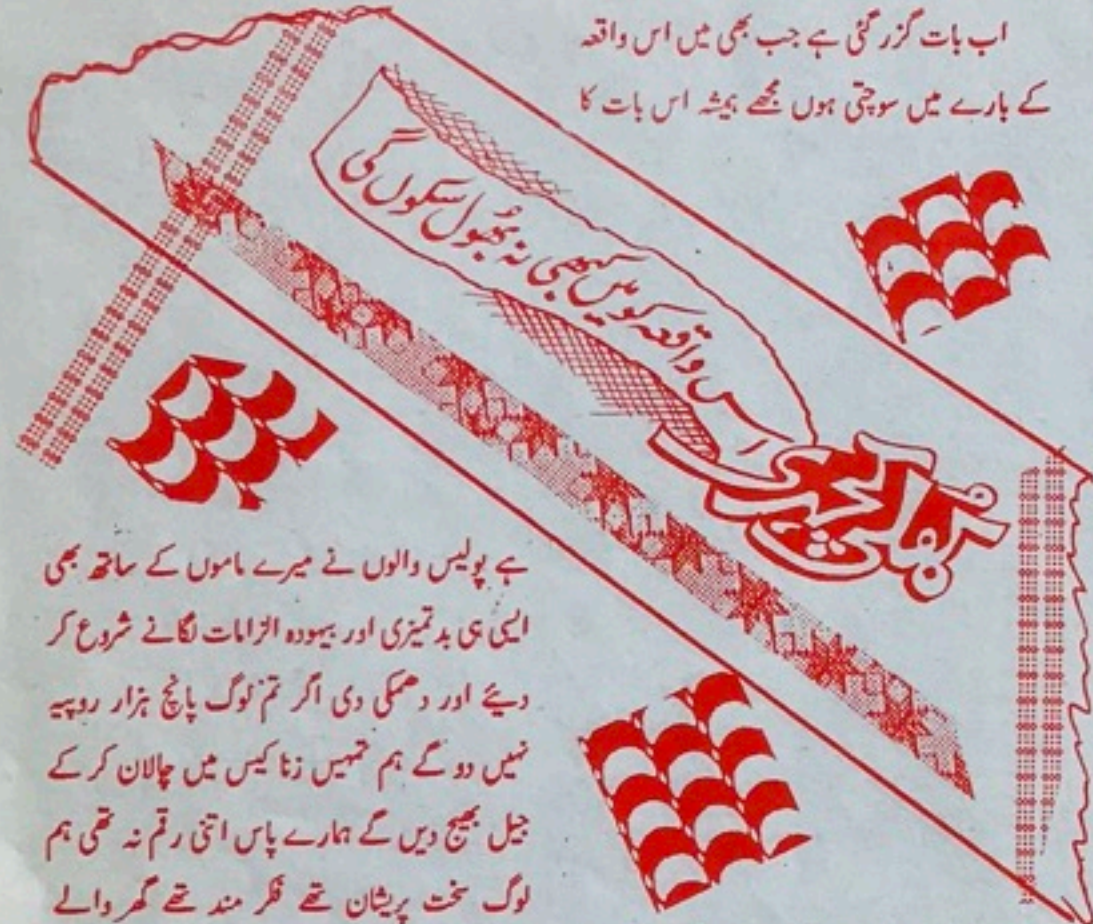 اب بات گزر گئی ہے جب بھی میں اس واقعہ
کے بارے میں سوچتی ہوں مجھے ہمیشہ اس بات کا
اس واقعہ کو میں کبھی نہ بھول سکوں گی
کھلی کچہری
ہے پولیس والوں نے میرے ماموں کے ساتھ بھی
ایسی ہی بدتمیزی اور بیہودہ الزامات لگانے شروع کر
دیئے اور دھمکی دی اگر تم لوگ پانچ ہزار روپیہ
نہیں دو گے ہم تمہیں زنا کیس میں چالان کر کے
جیل بھیج دیں گے ہمارے پاس اتنی رقم نہ تھی ہم
لوگ سخت پریشان تھے فکر مند تھے گھر والے